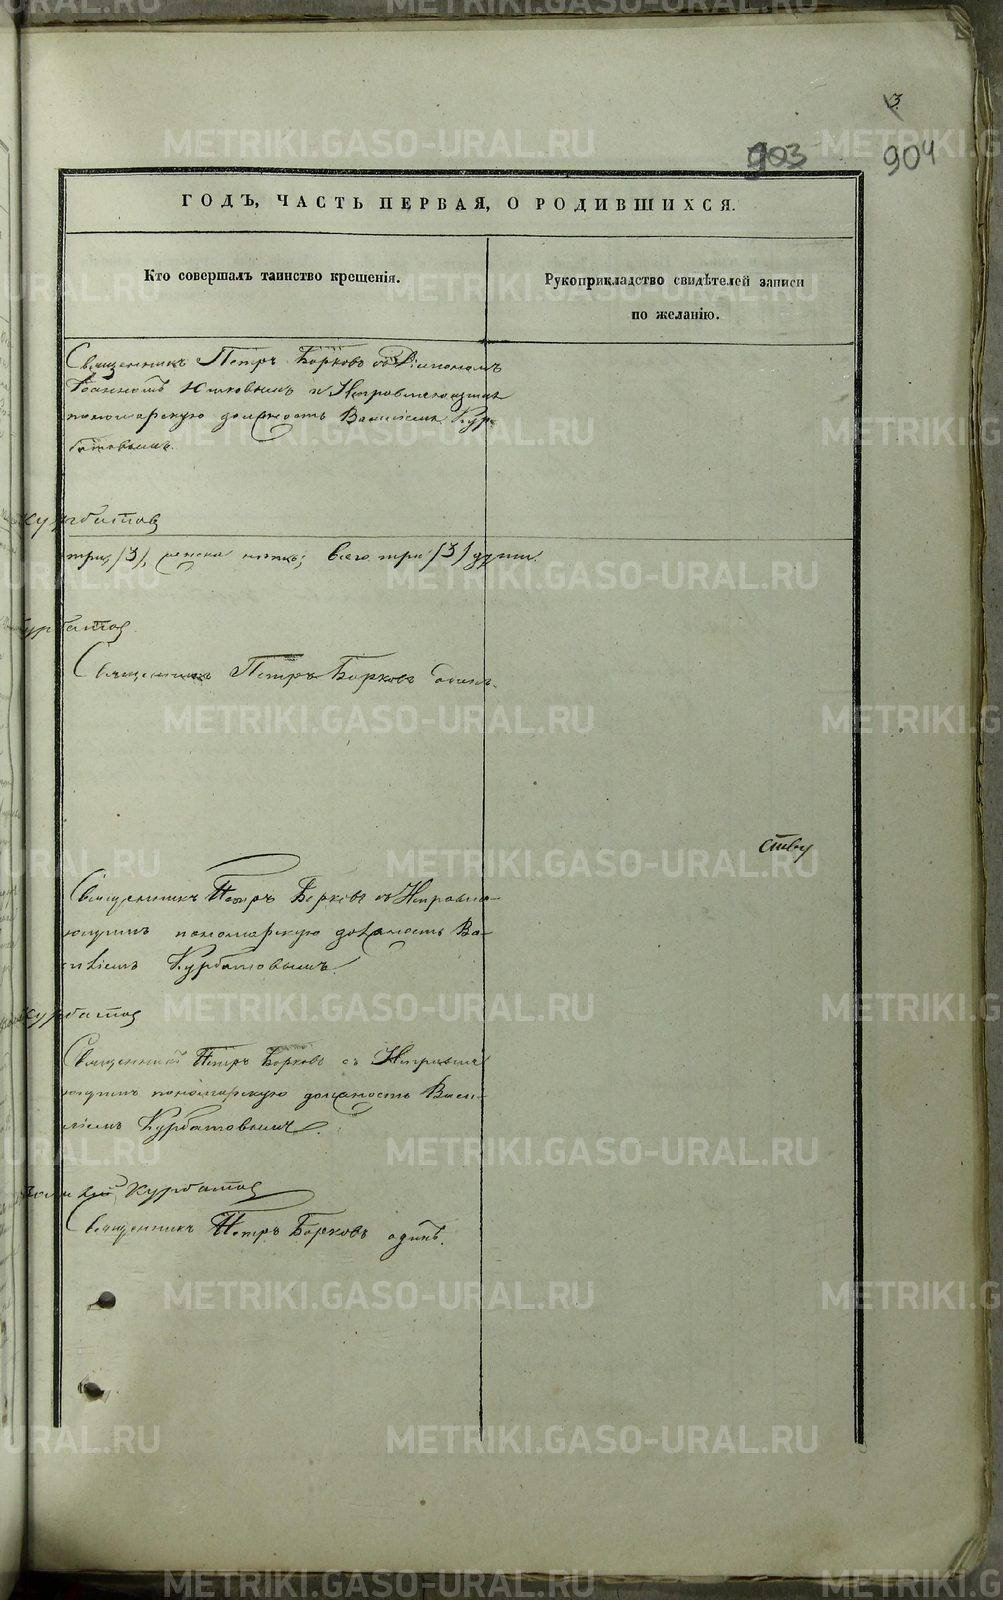 3
903
904
ГОДЪ, ЧАСТЬ ПЕРВАЯ, О РОДИВШИХСЯ.
Кто совершалъ таинство крещенія.
Рукоприкладство свидѣтелей записи
по желанію.
Священникъ Петръ Борковъ съ Діакономъ
Іоанномъ и Исправляющимъ
пономарскую должность Василіемъ Кур-
батовымъ.
Курбатов
три, (3), женска нѣтъ; всего три (3) души.
Курбатов
Священникъ Петръ Борковъ одинъ.
ству
Священникъ Петръ Борковъ съ Исправля-
ющимъ пономарскую должность Ва-
силіемъ Курбатовымъ.
Курбатов
Священникъ Петръ Борковъ съ Исправля
ющимъ пономарскую должность Васи-
ліемъ Курбатовымъ.
Василій Курбатов
Священникъ Петръ Борковъ одинъ.
METRIKI.GASO-URAL.RU